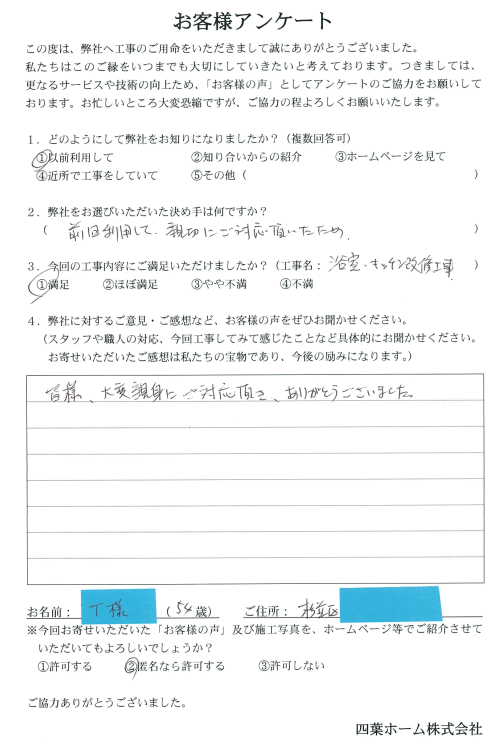 お客様アンケート
この度は、弊社へ工事のご用命をいただきまして誠にありがとうございました。
私たちはこのご縁をいつまでも大切にしていきたいと考えております。つきましては、
更なるサービスや技術の向上ため、「お客様の声」としてアンケートのご協力をお願いして
おります。お忙しいところ大変恐縮ですが、ご協力の程よろしくお願いいたします。
1．どのようにして弊社をお知りになりましたか？（複数回答可）
①以前利用して ②知り合いからの紹介 ③ホームページを見て
④近所で工事をしていて ⑤その他（ ）
2．弊社をお選びいただいた決め手は何ですか？
（ 前回利用して、親切にご対応頂いたため。 ）
3．今回の工事内容にご満足いただけましたか？（工事名： 浴室・キッチン改修工事 ）
①満足 ②ほぼ満足 ③やや不満 ④不満
4．弊社に対するご意見・ご感想など、お客様の声をぜひお聞かせください。
（スタッフや職人の対応、今回工事してみて感じたことなど具体的にお聞かせください。
お寄せいただいたご感想は私たちの宝物であり、今後の励みになります。）
皆様、大変親身にご対応頂き、ありがとうございました。
お名前： T様 （54歳） ご住所： 杉並区
※今回お寄せいただいた「お客様の声」及び施工写真を、ホームページ等でご紹介させて
いただいてもよろしいでしょうか？
①許可する ②匿名なら許可する ③許可しない
ご協力ありがとうございました。
四葉ホーム株式会社